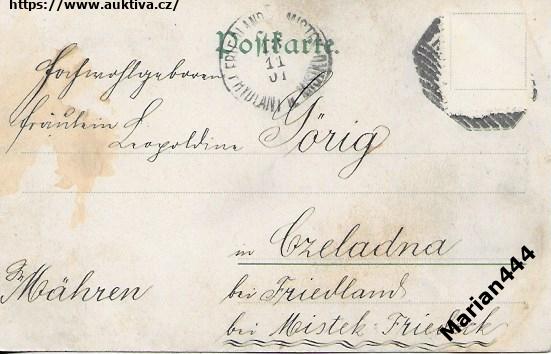 https://www.auktiva.cz/
Postkarte.
FRIEDLAND MISTEK
11
01
FRYDLANT
Hochwohlgeboren
Fräulein L.
Leopoldine Görig
in Czeladna
Mähren
bei Friedland
bei Mistek-Friedek
Marian444